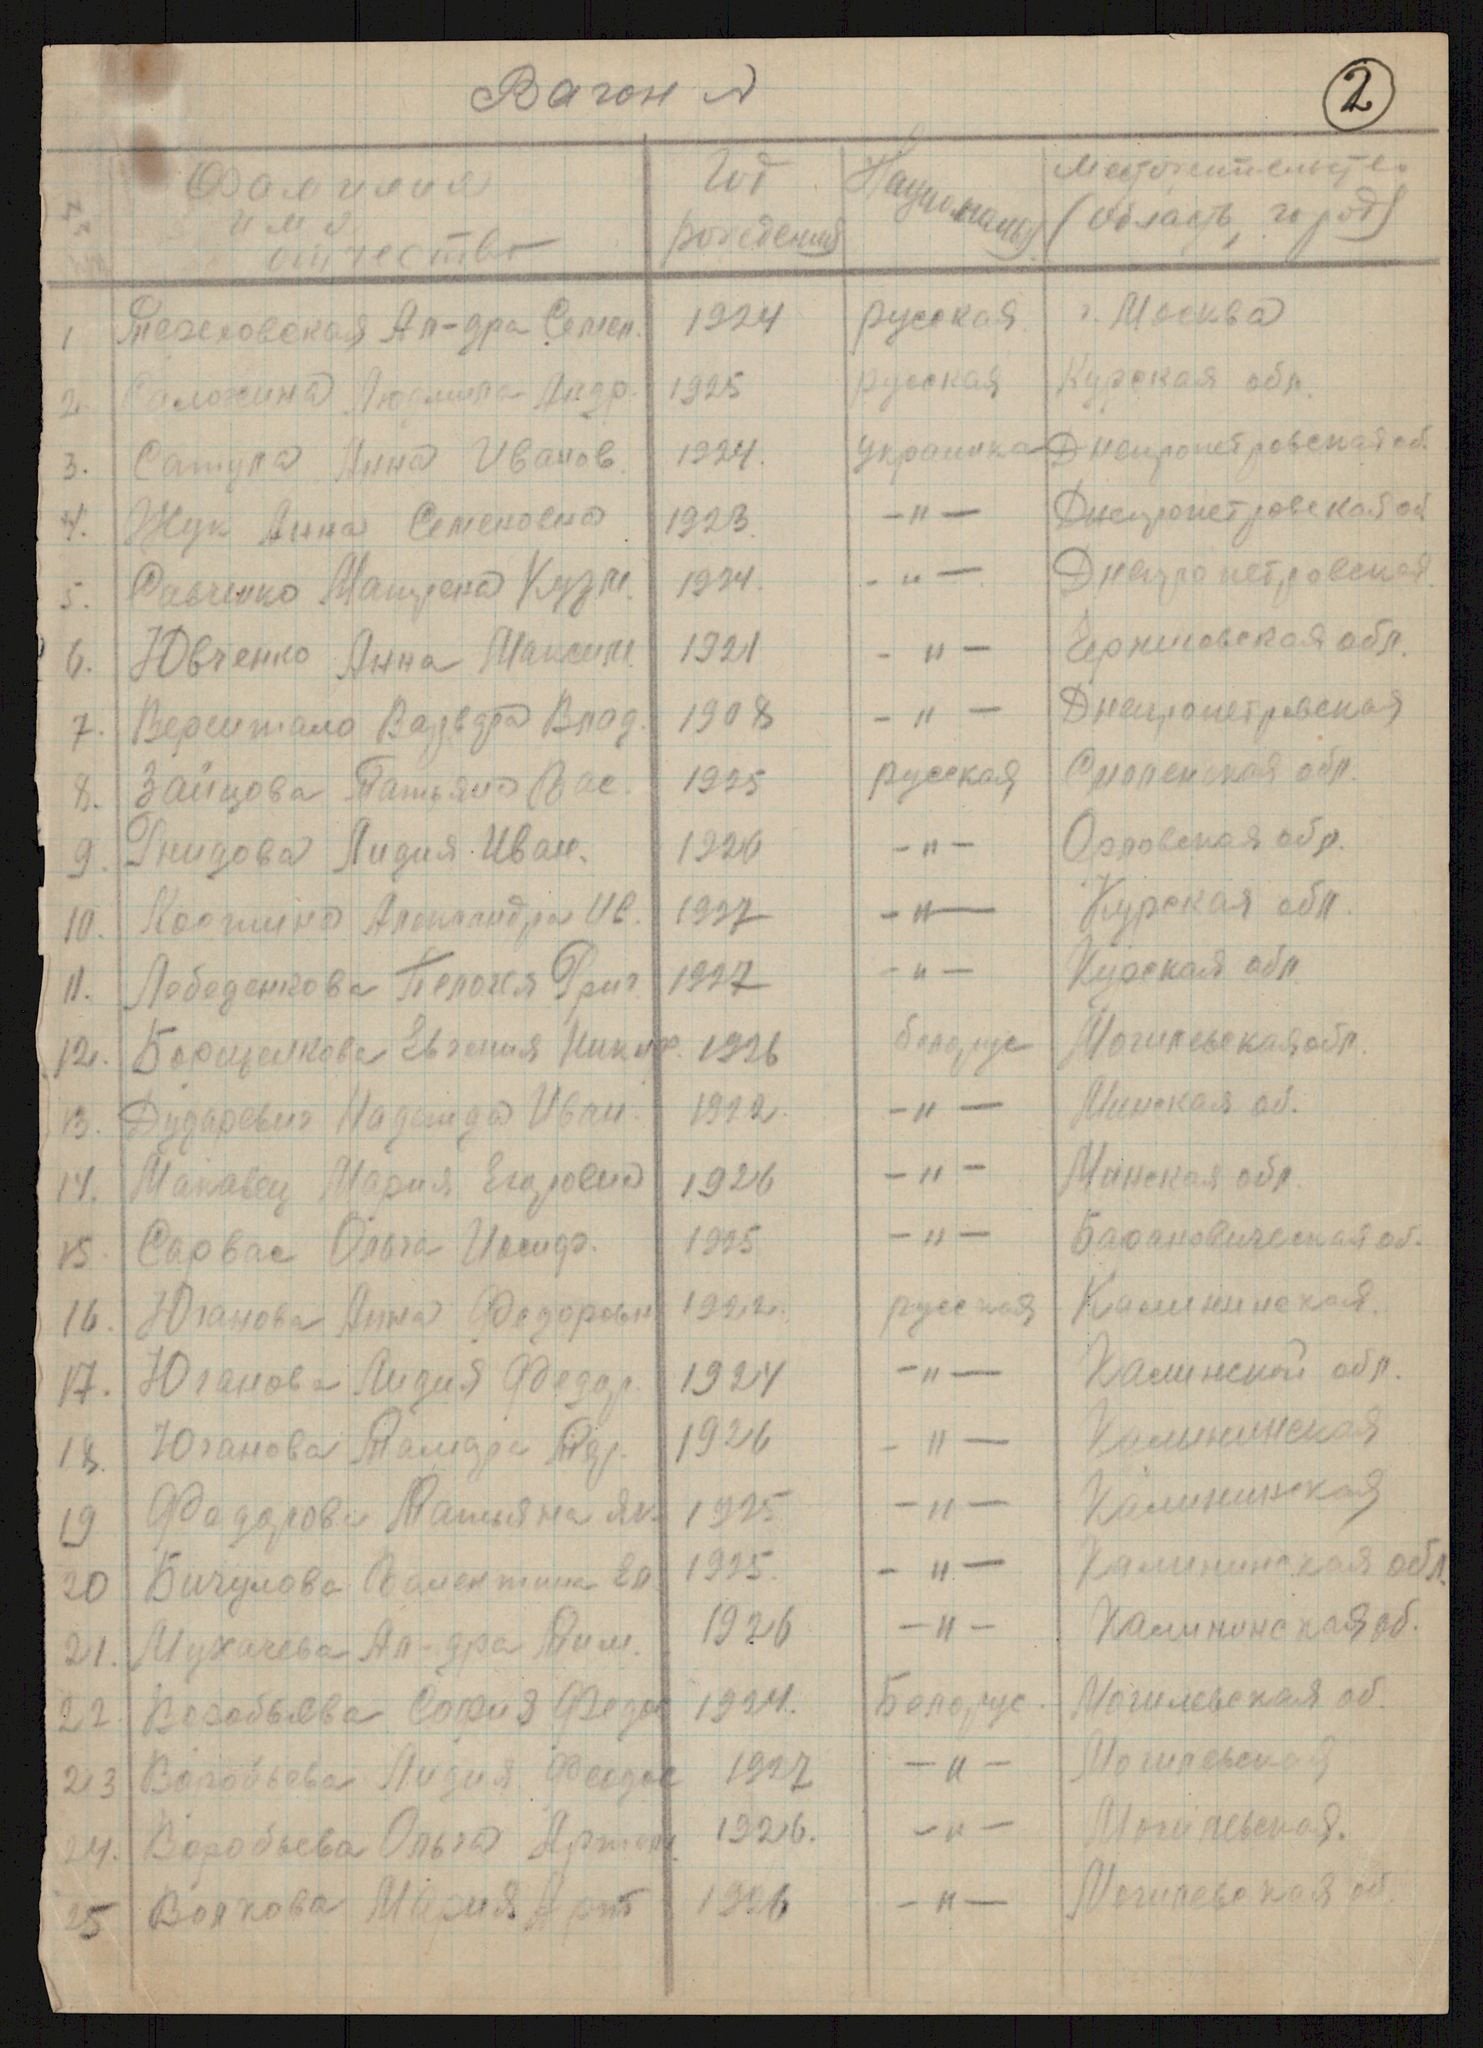 Вагон №
2
Фамилия имя отчество Год рождения Национальн. Местожительство (область, город)
1 Ал-дра Семен. 1924 русская г. Москва
2. Саложина Людмила Андр. 1925 русская Курская обл.
3. Сатула Анна Иванов. 1924. украинка Днепропетровская об.
4. Жук Анна Семеновна 1923. -"- Днепропетровская об
5. Савченко Матрена Кузм. 1924. -"- Днепропетровская.
6. Ювченко Анна Максим. 1921 -"- Черниговская обл.
7. Влад. 1908 -"- Днепропетровская
8. Зайцова Татьяна Вас. 1925 русская Смоленская обл.
9. Гнидова Лидия Иван. 1926 -"- Орловская обл.
10. Александра Ив. 1927 -"- Курская обл.
11. Лебеденкова Пелогея Григ. 1927 -"- Курская обл
12. Борщелкова Евгения 1926 белорус Могилевская обл.
13. Дударевич Надежда Иван. 1922. -"- Минская об.
14. Макавец Мария Егоровна 1926 -"- Минская обл.
15. Сарвас Ольга Иосиф. 1925 -"- Барановическая об.
16. Юганова Анна Федоровн 1922. русская Калининская.
17. Юганова Лидия Федор. 1924 -"- Калинской обл.
18. Юганова 1926 -"- Калининская
19 Федорова Татьяна Як. 1925 -"- Калининская
20 Бичулова Валентина Ел. 1925. -"- Калининская обл.
21. Мухачева Ал-дра Тим. 1926 -"- Калининская об.
22. Воробьева София Федос 1924. Белорус. Могилевская об.
23 Воробьева Лидия Феодос 1927 -"- Могилевская
24. Воробьева Ольга Артем. 1926. -"- Могилевская.
25 Волкова Мария Арт 1926 -"- Могилевская об.